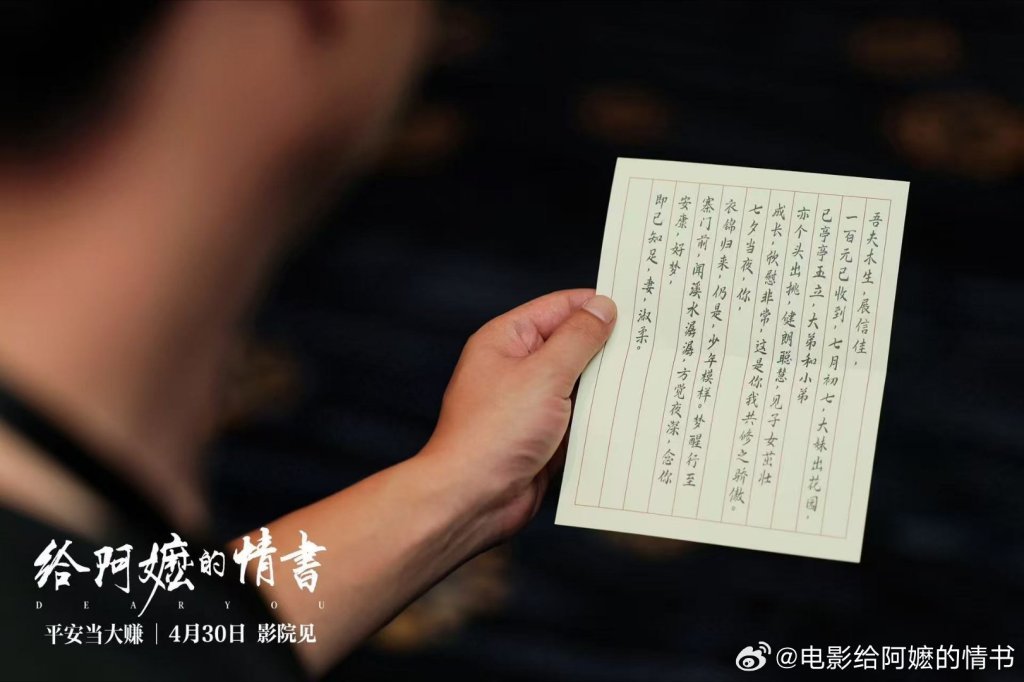 吾夫木生，展信佳，
一百元已收到，七月初七，大妹出花园，
已亭亭玉立，大弟和小弟
亦个头出挑，健朗聪慧，见子女茁壮
成长，欣慰非常，这是你我共修之骄傲。
七夕当夜，你，
衣锦归来，仍是，少年模样。梦醒行至
寨门前，闻溪水潺潺，方觉夜深，念你
安康，好梦，
即已知足，妻，淑柔。
给阿嬷的情書
DEAR YOU
平安当大赚｜4月30日 影院见
@电影给阿嬷的情书